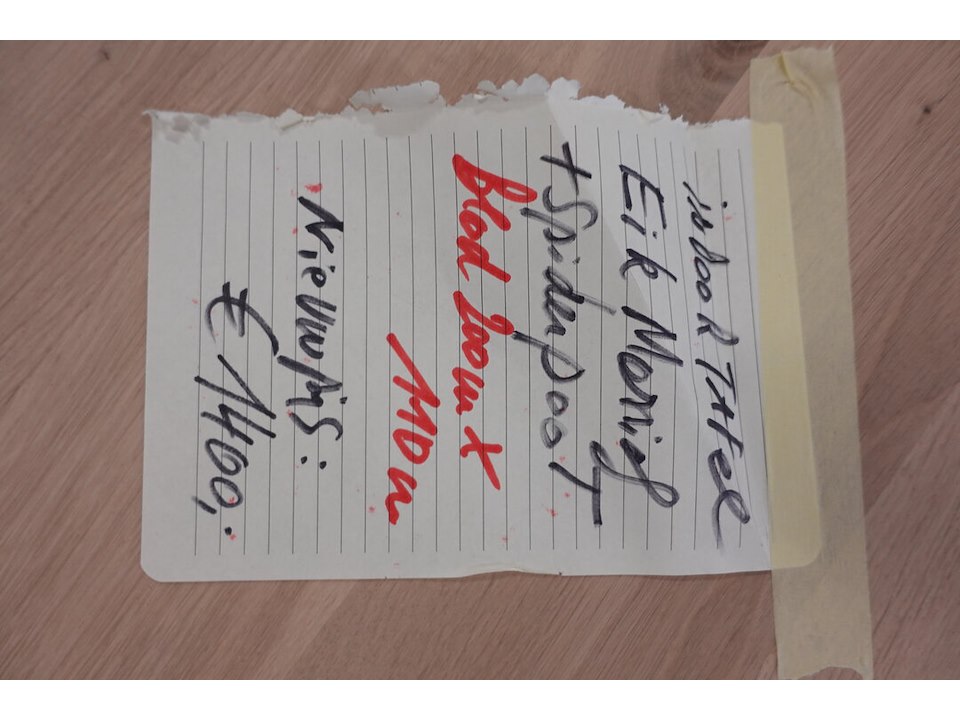 indoor TAfel
Eik Massief
+ Spiderpoot
blad 200m x
110m
Nieuwprijs:
€ 1400,-